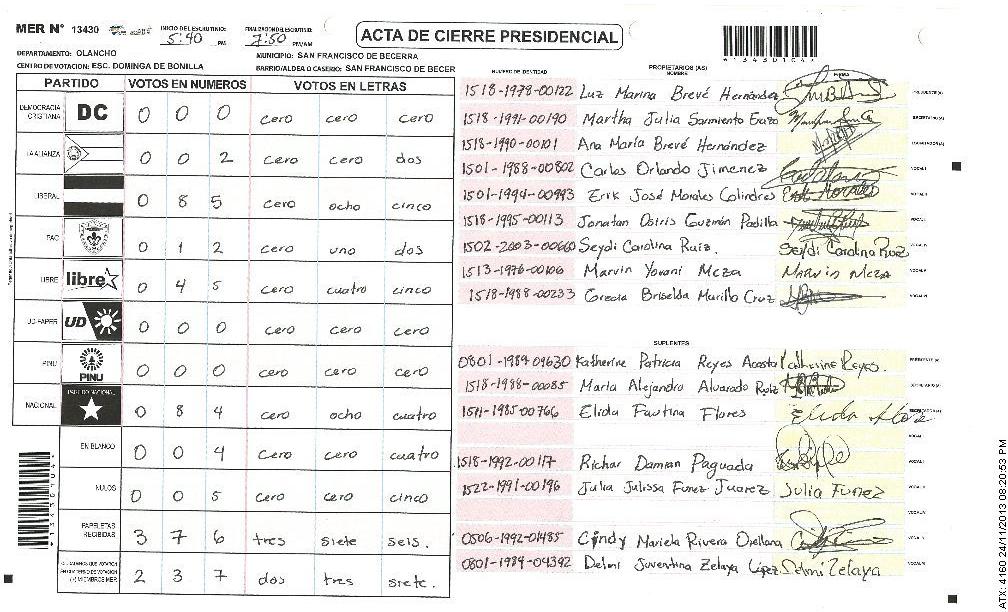 MER N° 13430
INICIO DEL ESCRUTINIO: 5:40 PM
FINALIZACION DEL ESCRUTINIO: 7:50 PM/AM
ACTA DE CIERRE PRESIDENCIAL
DEPARTAMENTO: OLANCHO
MUNICIPIO: SAN FRANCISCO DE BECERRA
CENTRO DE VOTACION: ESC. DOMINGA DE BONILLA
BARRIO/ALDEA O CASERIO: SAN FRANCISCO DE BECER
PARTIDO VOTOS EN NUMEROS VOTOS EN LETRAS
DEMOCRACIA CRISTIANA DC 0 0 0 cero cero cero
LA ALIANZA 0 0 2 cero cero dos
LIBERAL 0 8 5 cero ocho cinco
PAC 0 1 2 cero uno dos
LIBRE libre 0 4 5 cero cuatro cinco
UD-FAPER UD 0 0 0 cero cero cero
PINU PINU 0 0 0 cero cero cero
NACIONAL PARTIDO NACIONAL 0 8 4 cero ocho cuatro
EN BLANCO 0 0 4 cero cero cuatro
NULOS 0 0 5 cero cero cinco
PAPELETAS RECIBIDAS 3 7 6 tres siete seis.
2 3 7 dos tres siete.
NUMERO DE IDENTIDAD PROPIETARIOS (AS) NOMBRE FIRMA
1518-1978-00122 Luz Marina Brevé Hernández
1518-1991-00190 Martha Julia Sarmiento Erazo
1518-1990-00101 Ana María Brevé Henández
1501-1988-00802 Carlos Orlando Jimenez
1501-1994-00993 Erik José Morales Colindres Erik Morales
1518-1995-00113 Jonatan Osiris Guzmán Padilla
1502-2003-00660 Seydi Carolina Ruiz. Seydi Carolina Ruiz
1513-1976-00106 Marvin Yovani Meza Marvin Meza
1518-1988-00233 Grecia Briselda Murillo Cruz
SUPLENTES
0801-1984-09630 Katherine Patricia Reyes Acosta Katherine Reyes.
1518-1988-00085 Marla Alejandro Alvarado Ruiz
1511-1985-00766 Elida Fautina Flores Elida
1518-1992-00117 Richar Damian Paguada
1522-1991-00196 Julia Julissa Funez Juarez Julia Funez
0506-1992-01485 Cindy Mariela Rivera Orellana
0801-1984-04392 Delmi Juventina Zelaya López Delmi Zelaya
ATX: 4160 24/11/2013 08:20:53 PM